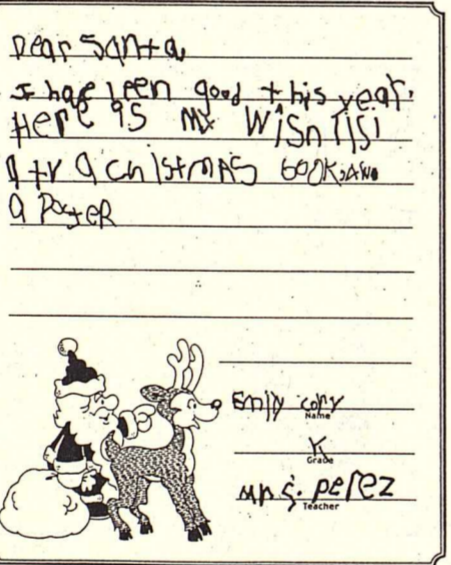 Dear Santa,
I have been good this year.
Here is my wish list
a tv a chistmas book, and
a Poster
Emily cory
Name
K
Grade
Mrs. perez
Teacher